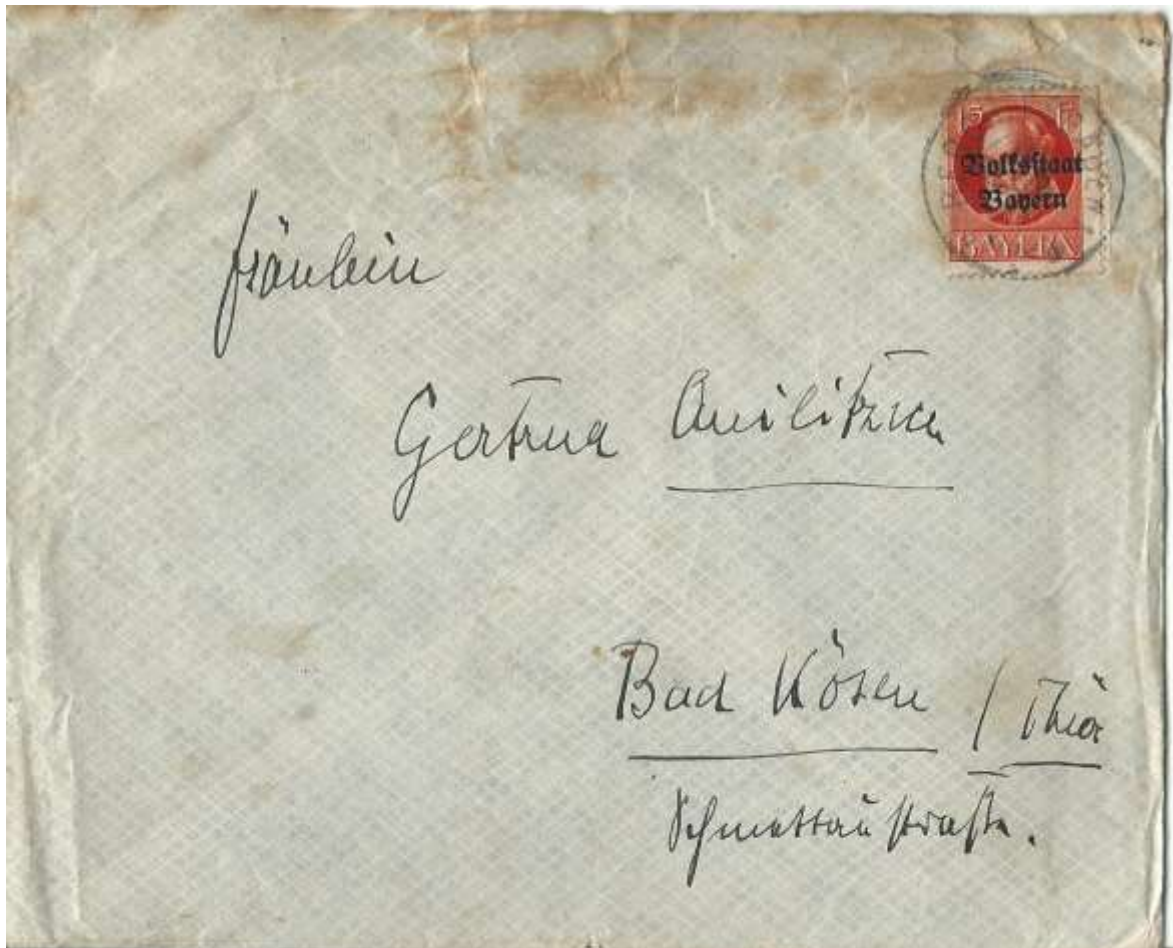 15 15
Volksstaat
Bayern
BAYERN
Fräulein
Gertrud
Bad Kösen / Thür
Schmettaustraße.